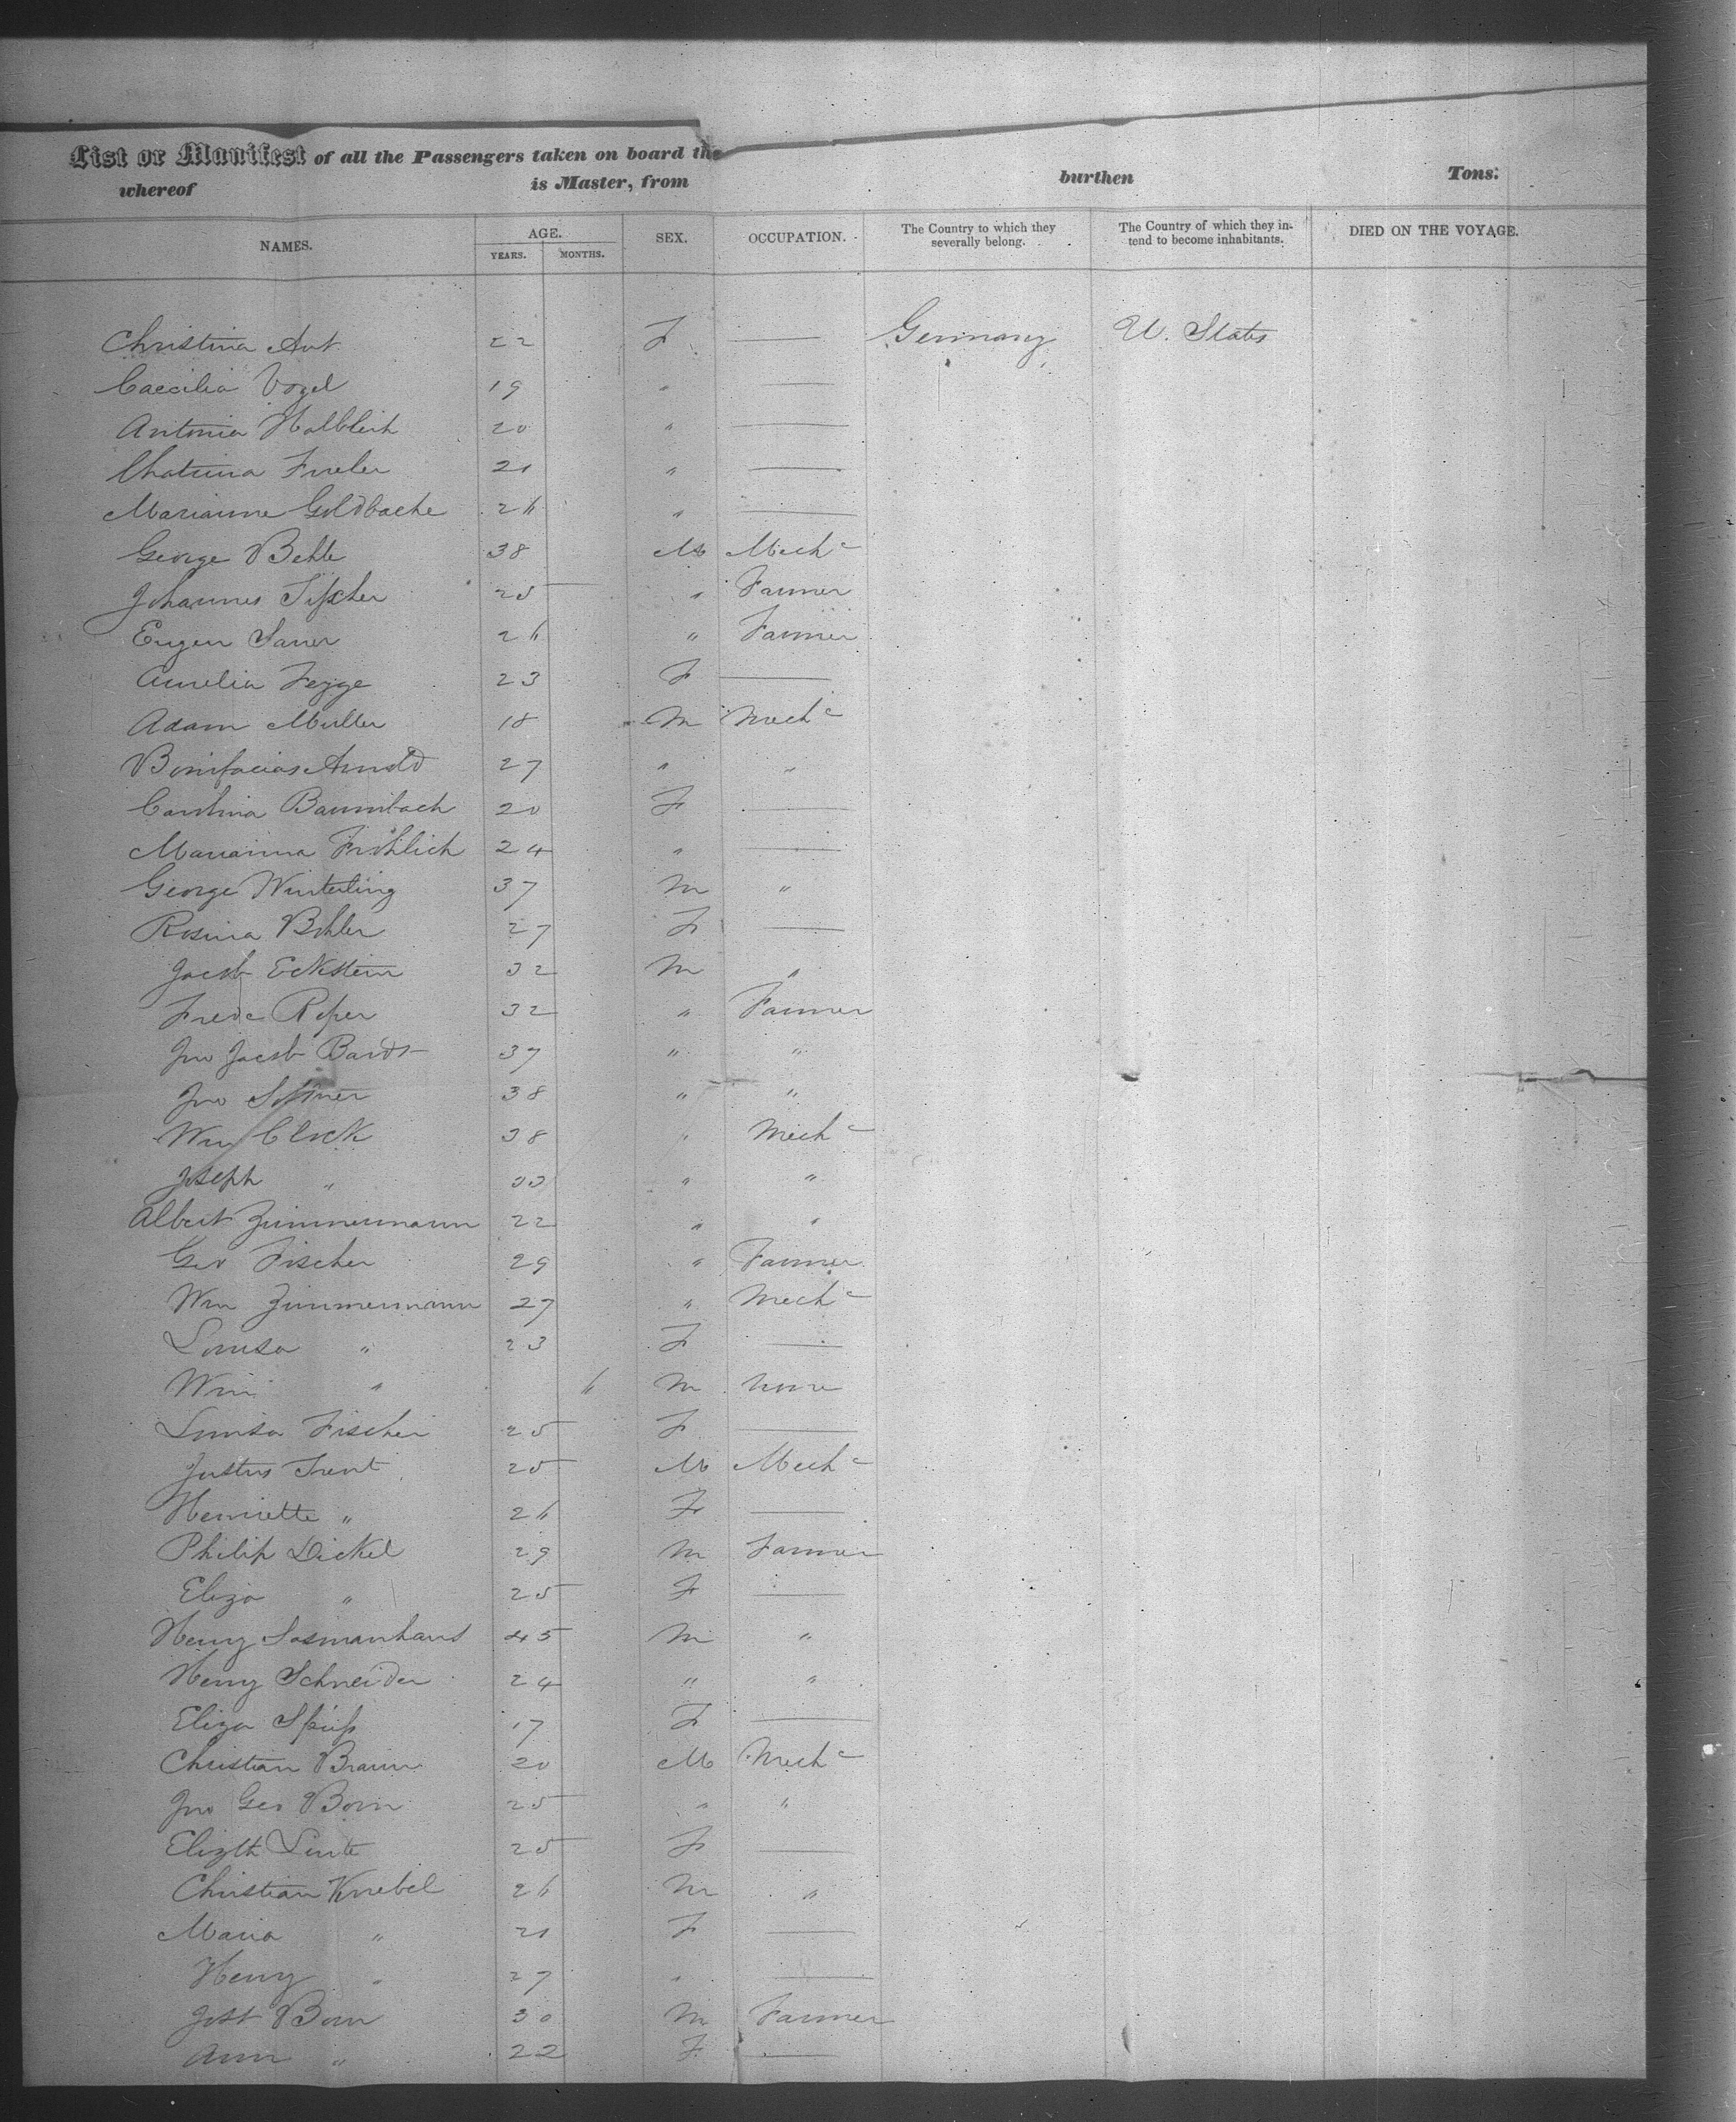 List or Manifest of all the Passengers taken on board the
whereof is Master, from burthen Tons.
NAMES. AGE. YEARS. MONTHS. SEX. OCCUPATION. The Country to which they severally belong. The Country of which they intend to become inhabitants. DIED ON THE VOYAGE.
Christina 22 F — Germany U. States
Caecilia Vogel 19 " —
Antonia Halbleib 20 " —
21 " —
Marianne Goldbache 26 " —
George 38 M Mechc
Johannes 25 " Farmer
Eugen 26 " Farmer
Aurelia Fegge 23 F —
Adam Muller 18 M Mechc
Bonifacias Arnold 27 " "
Carolina Baumbach 20 F —
Marianna Fröhlich 24 " —
George Winterling 37 M "
Rosina Bohler 27 F —
Jacob Eckstein 32 M "
Fredc 32 " Farmer
Jno Jacob 37 " "
Jno 38 " "
Wm Clock 38 " Mechc
Joseph " 33 " "
Albert Zimmermann 22 " "
Geo Fischer 29 " Farmer
Wm Zimmermann 27 " Mechc
Louisa " 23 F —
Wm " 6 M none
Louisa Fischer 25 F —
Justus 25 M Mechc
Henriette " 26 F —
Philip Dickel 29 M Farmer
Eliza " 25 F —
Henry 45 M "
Henry Schneider 24 " "
Eliza 17 F —
Christian Braun 20 M Mechc
Jno Geo Born 25 " "
Elizth 25 F —
Christian Knebel 26 M "
Maria " 21 F —
Henry " 27 " —
Jost Born 30 M Farmer
Ann " 22 F —